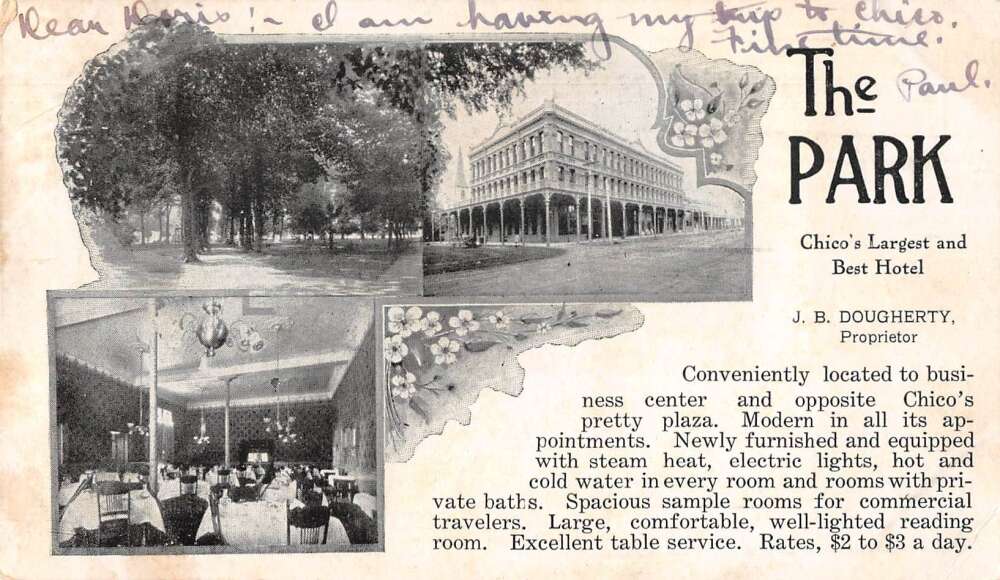 Dear Doris :- I am having my trip to Chico.
Fine time.
Paul.
The
PARK
Chico's Largest and
Best Hotel
J. B. DOUGHERTY,
Proprietor
Conveniently located to busi-
ness center and opposite Chico's
pretty plaza. Modern in all its ap-
pointments. Newly furnished and equipped
with steam heat, electric lights, hot and
cold water in every room and rooms with pri-
vate baths. Spacious sample rooms for commercial
travelers. Large, comfortable, well-lighted reading
room. Excellent table service. Rates, $2 to $3 a day.